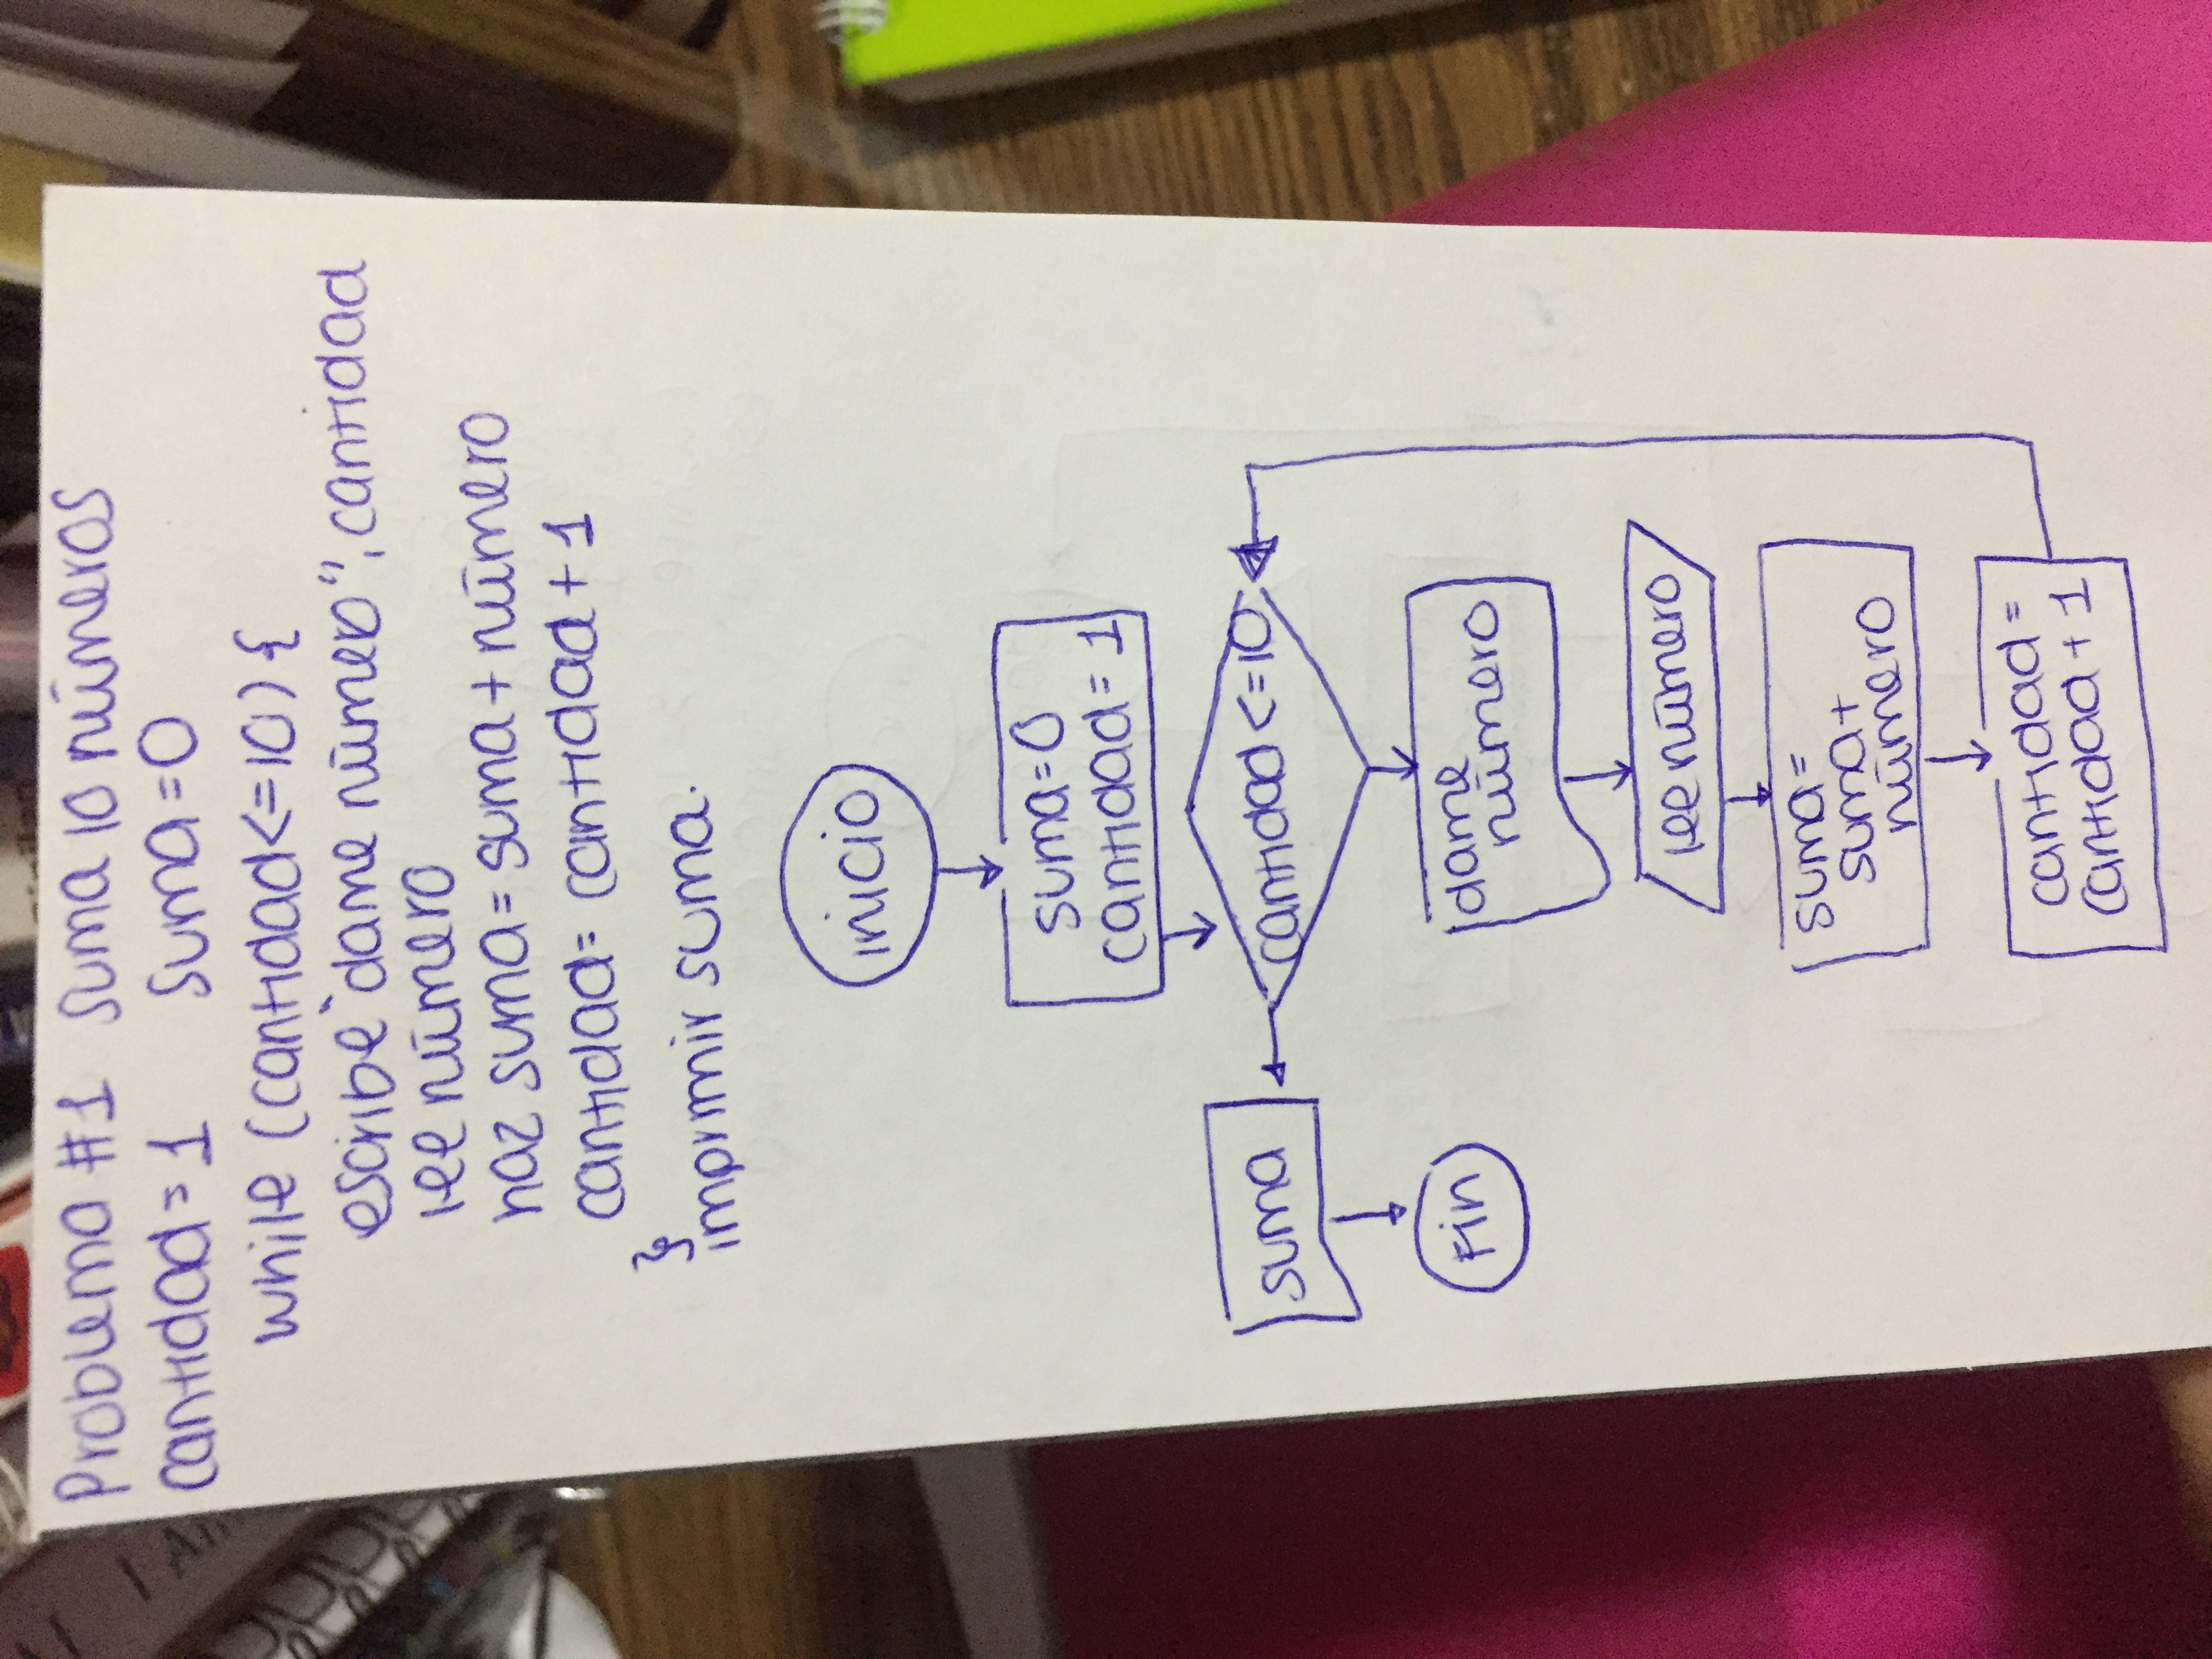 Problema #1 suma 10 números
cantidad = 1 suma = 0
while (cantidad <= 10) {
escribe "dame número", cantidad
lee número
haz suma = suma + número
cantidad = cantidad + 1
}
imprimir suma.
inicio
suma = 0
cantidad = 1
cantidad <= 10
suma
Fin
dame
número
lee número
suma =
suma +
número
cantidad =
cantidad + 1